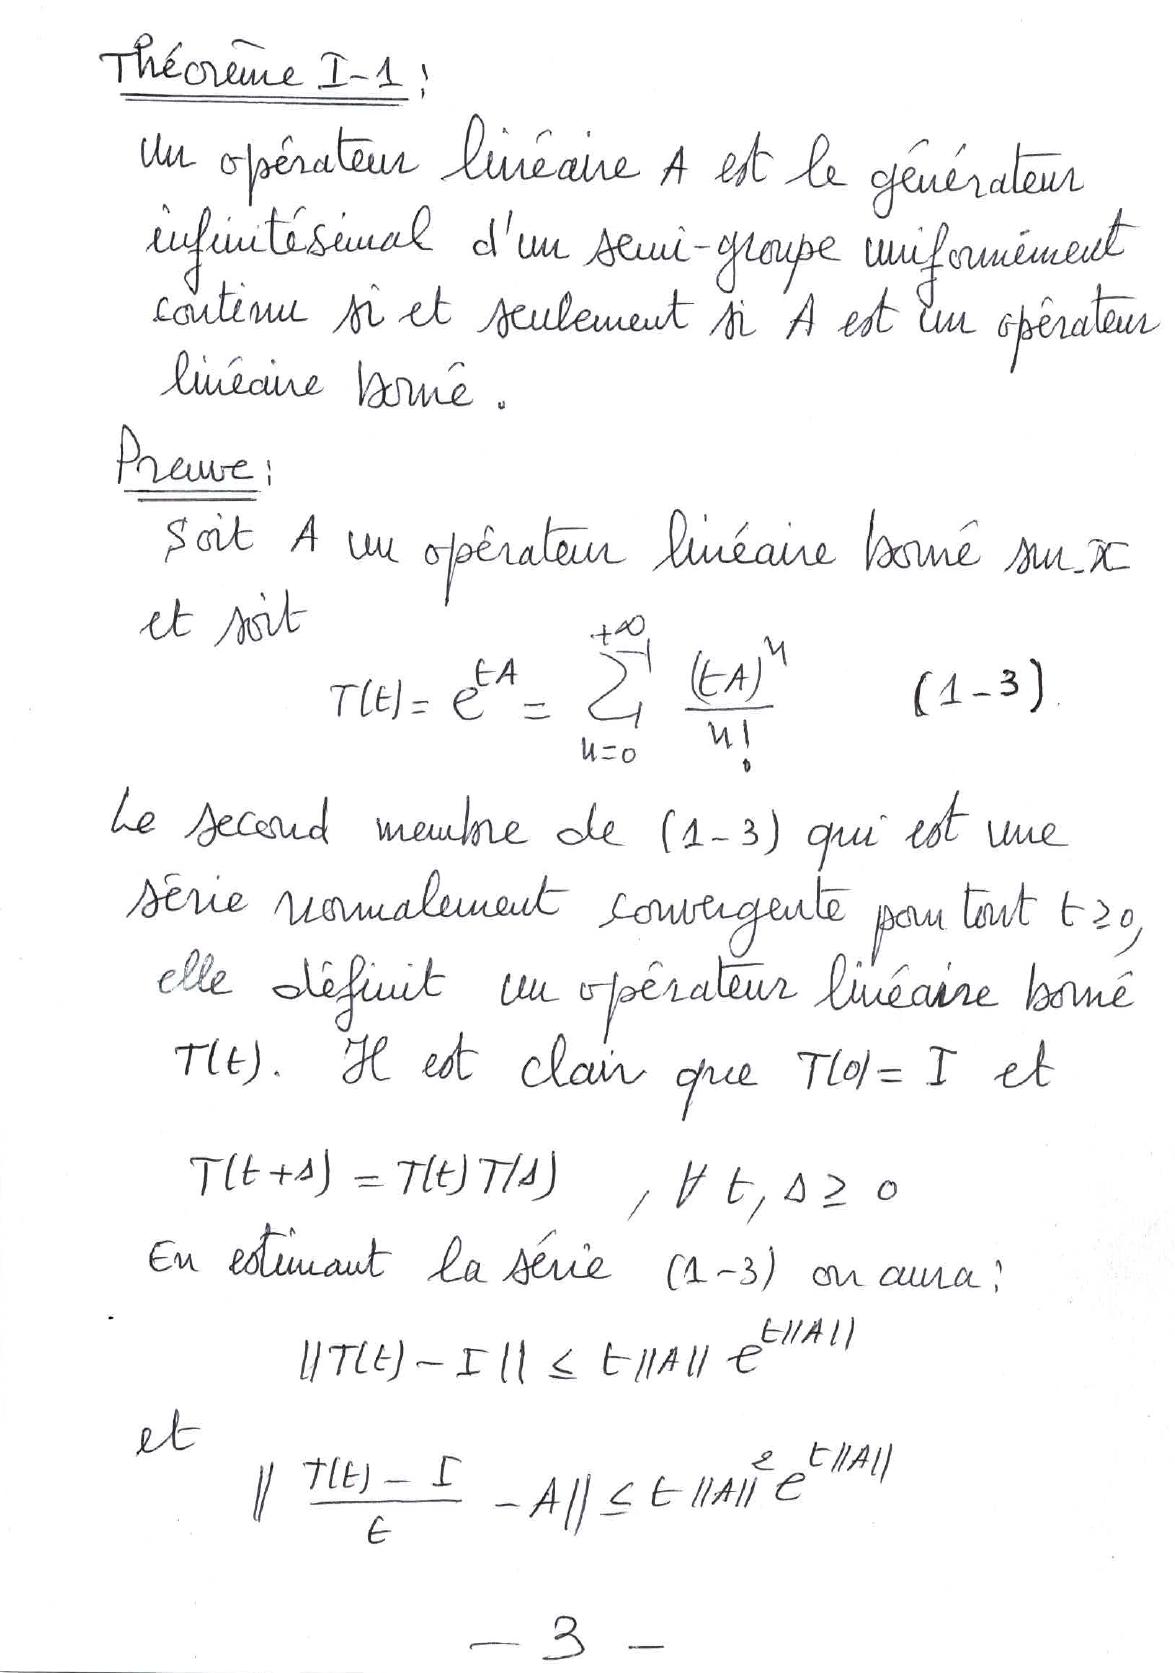 Théorème I-1 :
Un opérateur linéaire A est le générateur
infinitésimal d'un semi-groupe uniformément
continu si et seulement si A est un opérateur
linéaire borné.
Preuve :
Soit A un opérateur linéaire borné sur X
et soit
T(t) = e^{tA} = \sum_{n=0}^{+∞} \frac{(tA)^n}{n!} (1-3).
Le second membre de (1-3) qui est une
série normalement convergente pour tout t ≥ 0,
elle définit un opérateur linéaire borné
T(t). Il est clair que T(0) = I et
T(t+s) = T(t)T(s) , ∀ t, s ≥ 0
En estimant la série (1-3) on aura :
||T(t) - I|| ≤ t||A|| e^{t||A||}
et
|| \frac{T(t) - I}{t} - A|| ≤ t ||A||^2 e^{t||A||}
- 3 -